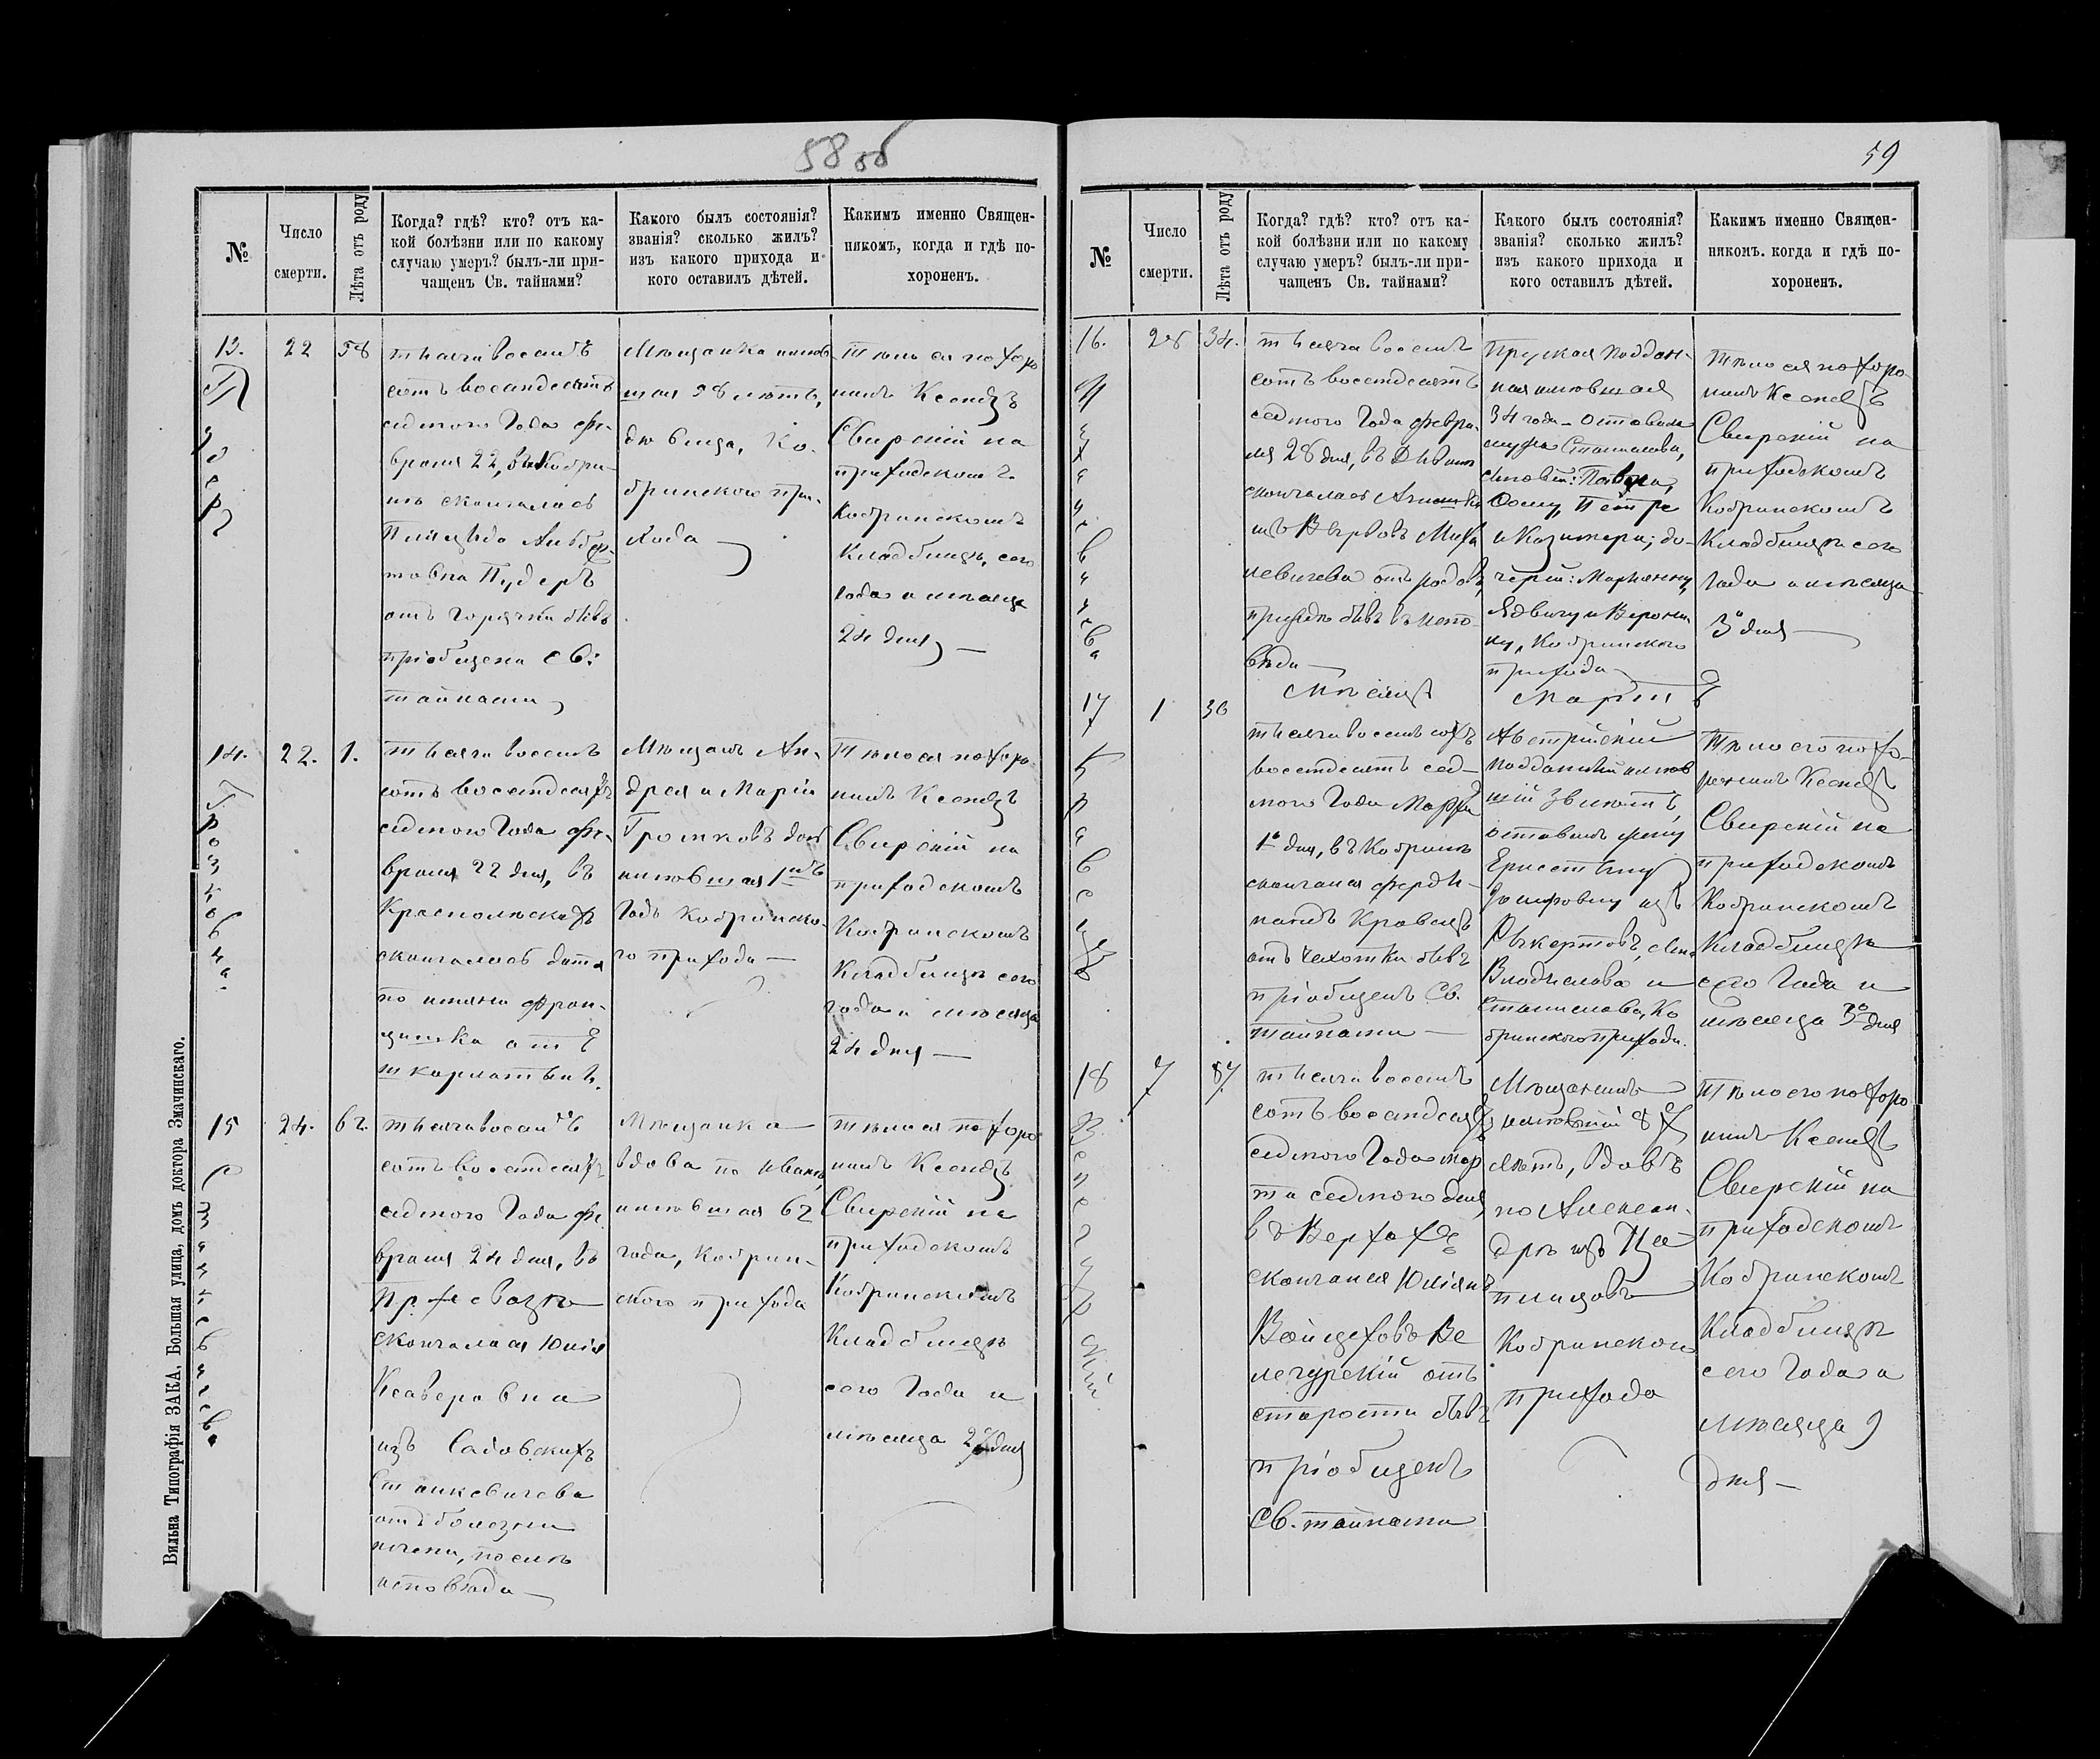 58 об
№
Число
смерти.
Лѣта отъ роду
Когда? гдѣ? кто? отъ ка-
кой болѣзни или по какому
случаю умеръ? былъ-ли при-
чащенъ Св. тайнами?
Какого былъ состоянія?
званія? сколько жилъ?
изъ какого прихода и
кого оставилъ дѣтей.
Какимъ именно Священ-
никомъ, когда и гдѣ по-
хороненъ.
13.
22
58
тысяча восемъ
сотъ восемдесятъ
седмого Года фе-
враля 22, въ Кобри-
нѣ скончалась
Альбер-
товна Пудеръ
отъ горячки бывъ
пріобщена Св:
тайнами
Мѣщанка имѣв-
шая 58 лѣтъ,
Ко-
бринского при-
хода
Тѣло ея похоро
нилъ Ксендзъ
Свирскій на
приходскомъ
Кобринскомъ
Кладбищѣ, сего
года и мѣсяца
24 дня
14.
22.
1.
Громковна
тысяча восемъ
сотъ восемдесятъ
седмого Года фе-
враля 22 дня, въ
скончалось дитя
по имяни Фран-
цишка отъ
шкарлатыны.
Мѣщанъ Ан-
дрея и Маріи
Громковъ дочь
имѣвшая 1инъ
Годъ Кобринско-
го прихода
Тѣло ея похоро-
нилъ Ксендзъ
Свирскій на
приходскомъ
Кобринскомъ
Кладбищѣ сего
года и мѣсяца
24 дня
15
24.
62.
Станкевичева
тысяча восемъ
сотъ восемдесятъ
седмого Года фе
враля 24 дня, въ
скончалась Юлія
Ксаверовна
изъ Садовскихъ
Станкевичева
отъ болезни
печени, послѣ
исповѣди
Мѣщанка
вдова по Иванѣ,
имѣвшая 62
года, Кобрин-
ского прихода
Тѣло ея похоро
нилъ Ксендзъ
Свирскій на
приходскомъ
Кобринскомъ
Кладбищѣ
сего Года и
мѣсяца дня
Вильна Типографія ЗАКА, Большая улица, домъ доктора Змачинскаго.
59
№
Число
смерти.
Лѣта отъ роду
Когда? гдѣ? кто? отъ ка-
кой болѣзни или по какому
случаю умеръ? былъ-ли при-
чащенъ Св. тайнами?
Какого былъ состоянія?
званія? сколько жилъ?
изъ какого прихода и
кого оставилъ дѣтей.
Какимъ именно Священ-
никомъ. когда и гдѣ по-
хороненъ.
16.
28
34.
тысяча восемъ
сотъ восемдесятъ
седмого Года февра-
ля 28 дня, въ
скончалась
Миха
левичева отъ родовъ,
бывъ
Пруская поддан-
ная имѣвшая
34 года - оставила
мужа Станислава,
сыновей: Павла,
Петра
и Казимера; до-
черей: Маріянну,
Ядвигу и Верони-
ку, Кобринского
прихода
Тѣло ея похоро
нилъ Ксендзъ
Свирскій на
приходскомъ
Кобринскомъ
Кладбищѣ сего
Года и мѣсяца
3 дня
Мѣсяцъ Мартъ
17
1
36
Кравецъ
тысяча восемъ сотъ
восемдесятъ сед-
мого Года Марта
1го дня, въ Кобринѣ
скончался Ферди-
нандъ Кравецъ
отъ чахотки бывъ
пріобщенъ Св.
тайнами
Австрійскій
подданный имѣв
шій лѣтъ,
оставилъ жену
Ернестыну
изъ
Владислава и
Станислава, Ко
бринского прихода.
Тѣло его похо-
ронилъ Ксендзъ
Свирскій на
приходскомъ
Кобринскомъ
Кладбищѣ
сего Года и
мѣсяца 3го дня
18
7
87
Велегурскій
тысяча восемъ
сотъ восемдесятъ
седмого Года мар
та седмого дня,
въ Верхахъ
скончался Юліянъ
Войцеховъ Ве
легурскій отъ
старости бывъ
пріобщенъ
Св. тайнами
Мѣщанинъ
имѣвшій 87
лѣтъ, вдовъ
по Алексан-
дрѣ изъ
Кобринского
прихода
Тѣло его похоро
нилъ Ксендзъ
Свирскій на
приходскомъ
Кобринскомъ
Кладбищѣ
сего Года и
мѣсяца 9
дня